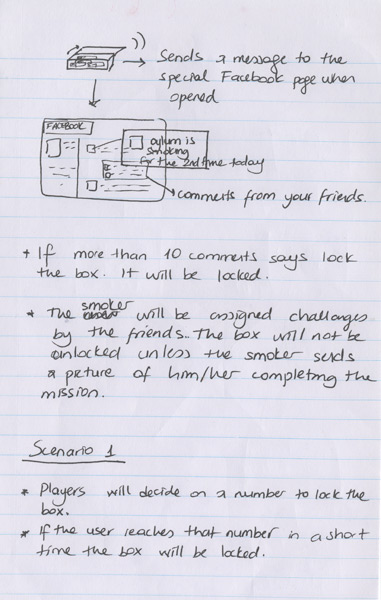 Sends a message to the
special Facebook page when
opened
FACEBOOK
oulum is
smoking
for the 2nd time today
comments from your friends.
+ If more than 10 comments says lock
the box. It will be locked.
* The smoker will be assigned challenges
by the friends.. The box will not be
unlocked unless the smoker sends
a picture of him/her completing the
mission.
Scenario 1
* Players will decide on a number to lock the
box.
* If the user reaches that number in a short
time the box will be locked.